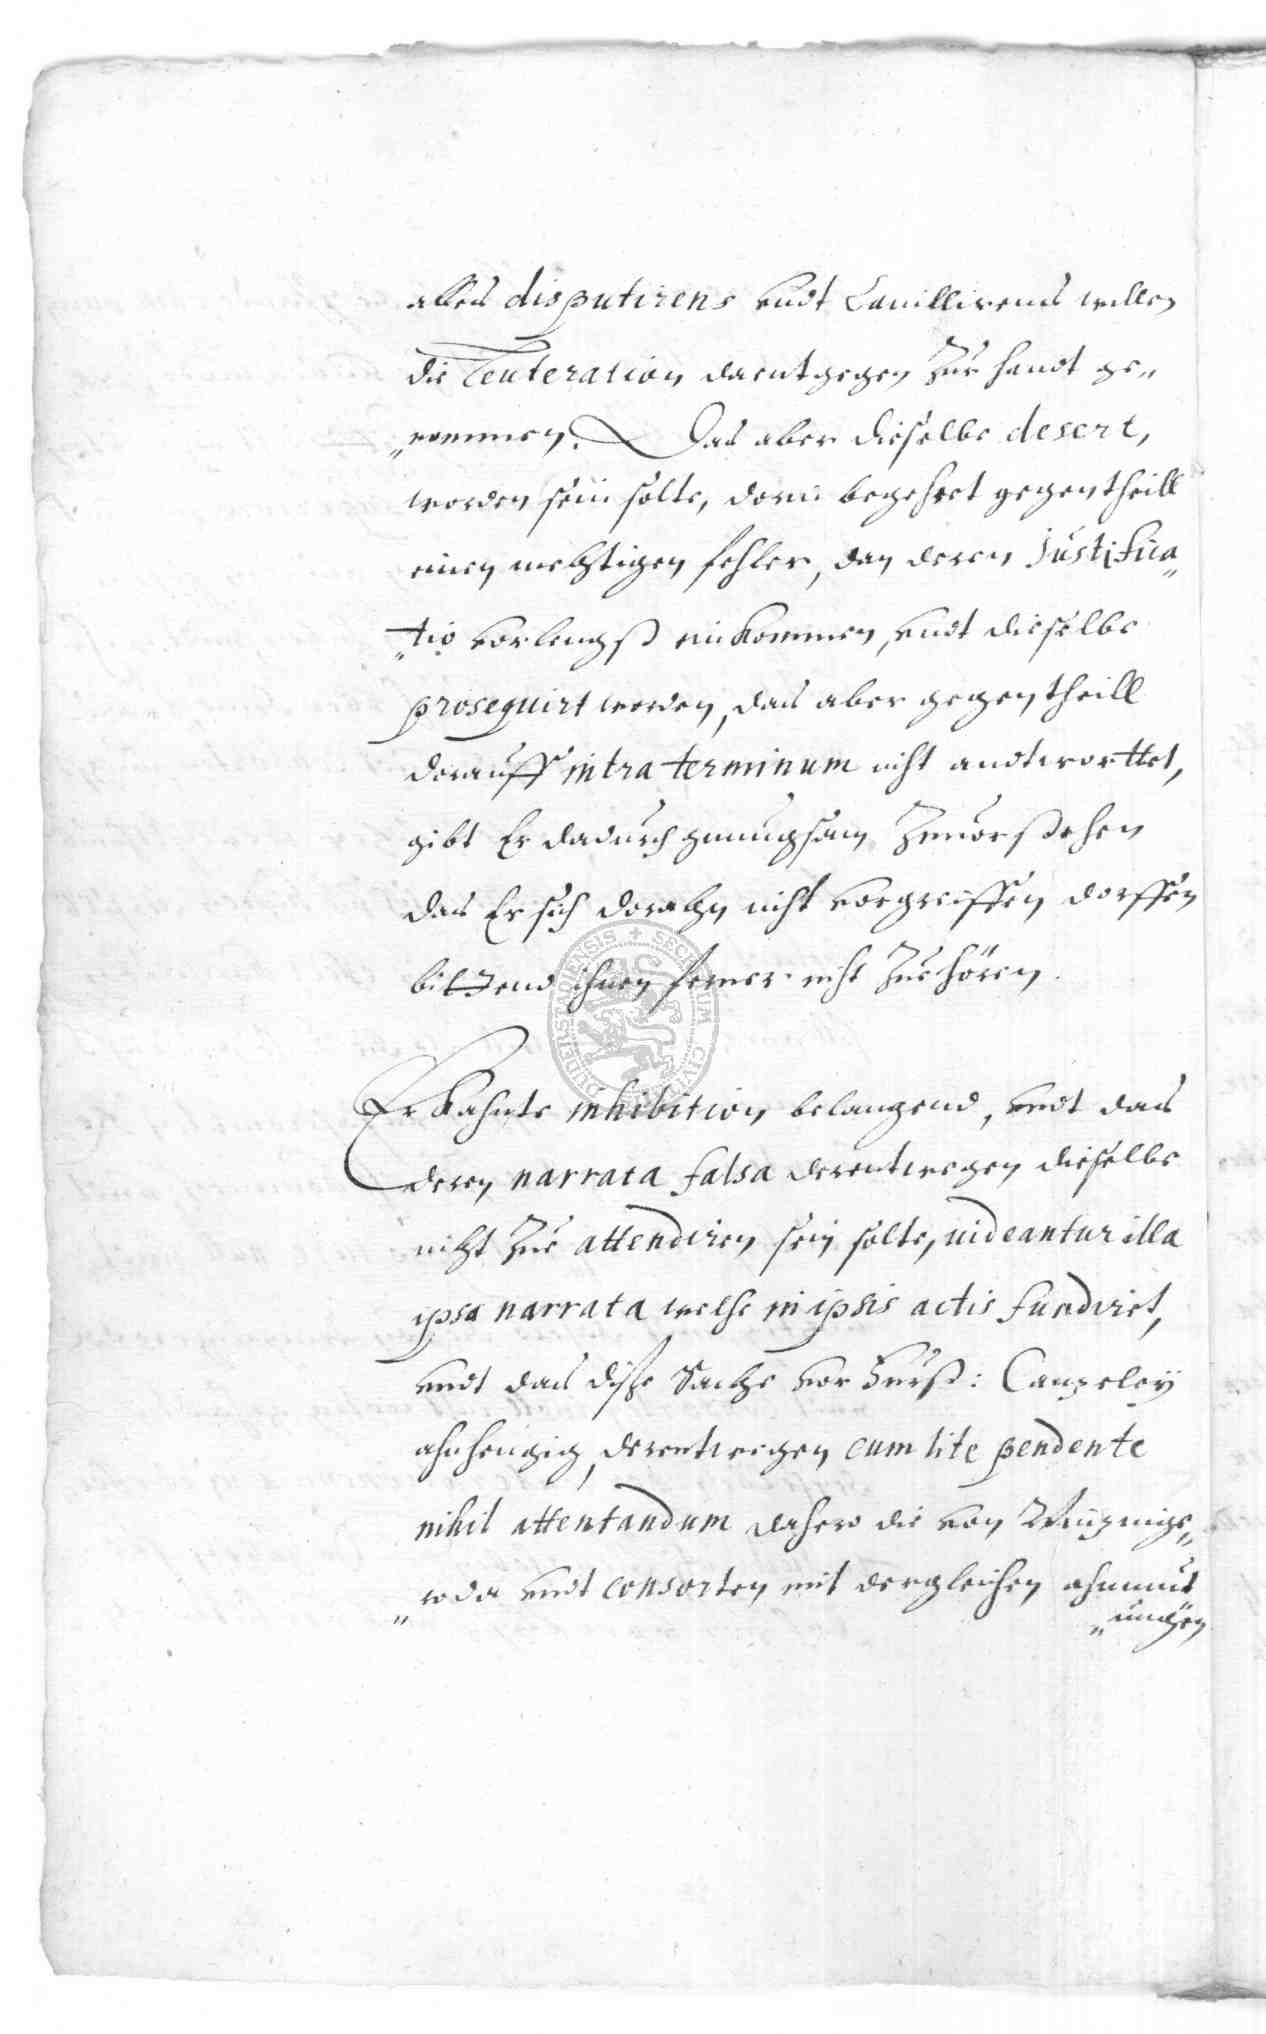 alles disputirens undt Cavillirens willen
die leuteration daentgegen zur handt ge„
„nommen. Das aber dieselbe desert,
worden sein solte, darin begehet gegentheill
einen mechtigen fehler, dan deren Justifica„
„tio vorlengst einkommen, undt dieselbe
prosequirt worden, das aber gegentheill
darauff intra terminum nicht andtworttet,
gibt Er dadurch gnungsam zuuorstehen
das Er sich darahn nicht vorgreiffen dorffen
bittend ihnen ferner nicht zue hören.
Erkahnte inhibition belangend, undt das
deren narrata falsa derentwegen dieselbe
nicht zue attendiren sein solte, uideantur illa
ipsa narrata welche in ipsis actis fundiret,
undt das diese Sache vor Furst: Cantzeley
ahnhengig, derentwegen cum lite pendente
nihil attentandum dahero die von Wintzinge„
„roda undt consorten mit dergleichen ahnmut
„ungen
DUDERSTADENSIS + SECRETUM CIVI